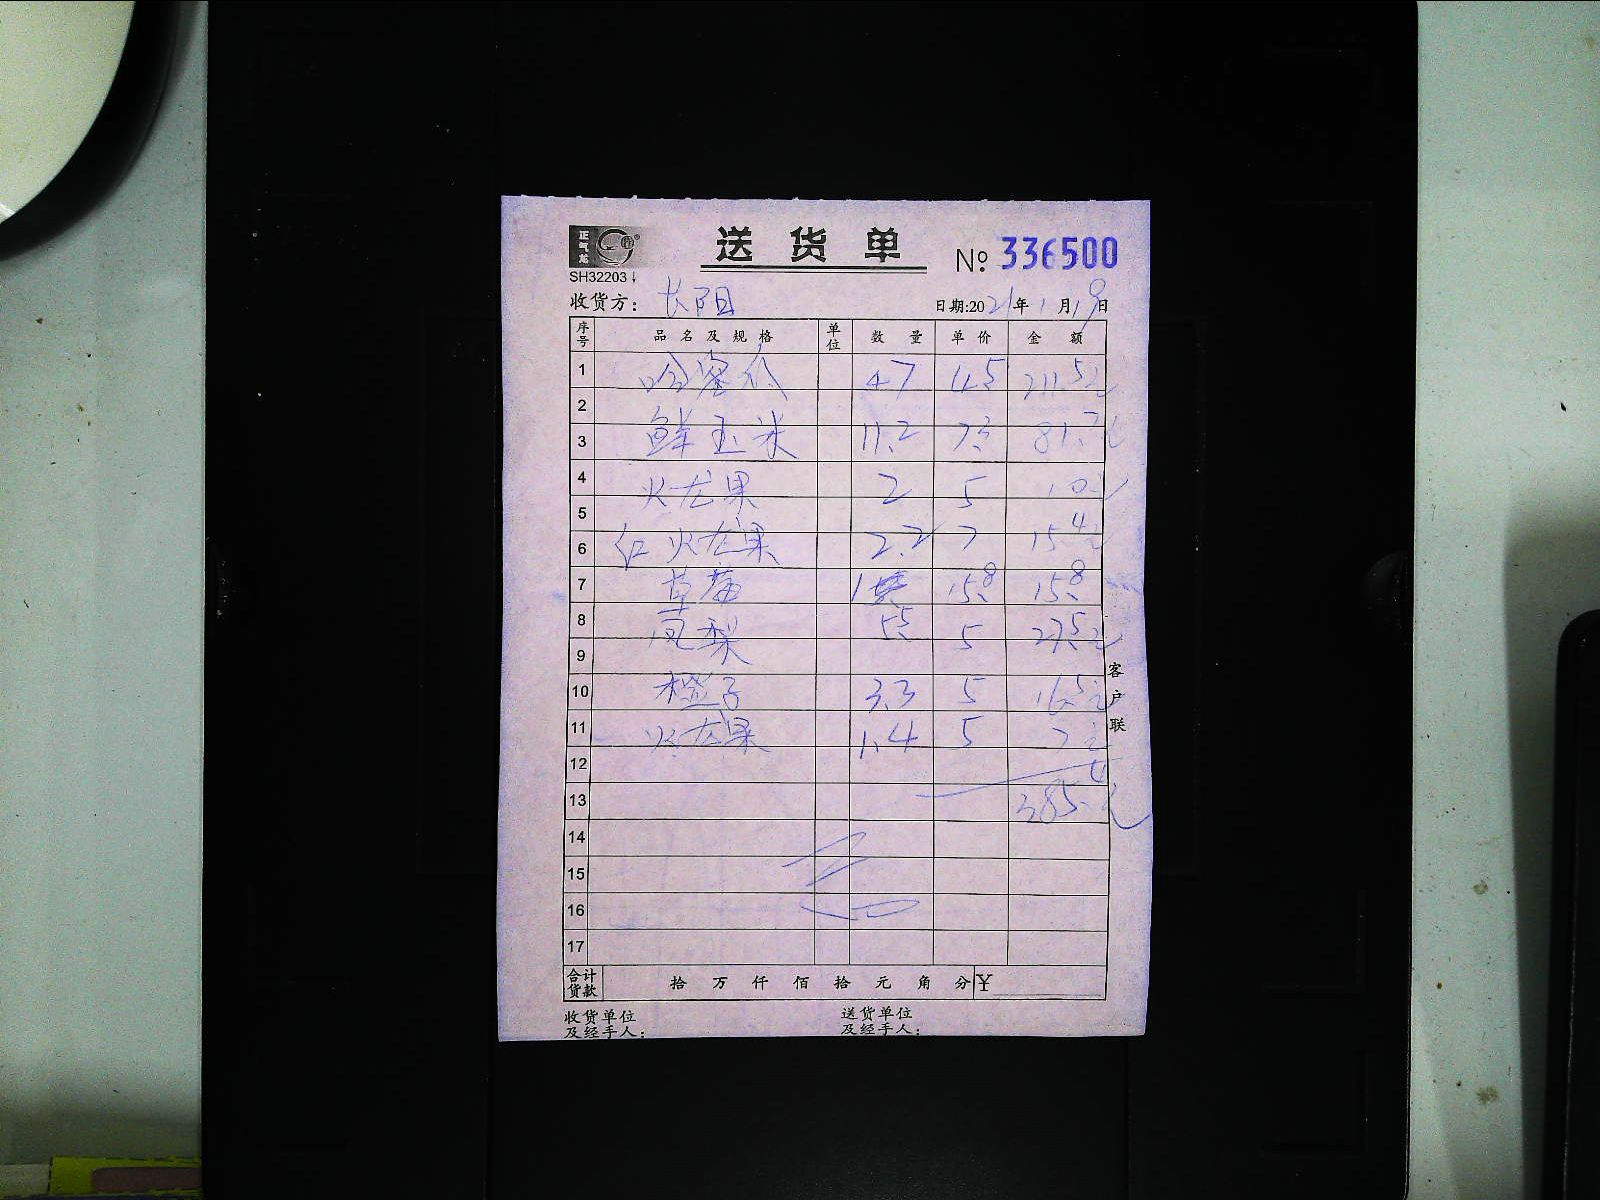 正气龙
送货单
№ 336500
SH32203
收货方: 长阳
日期:2021年1月19日
序号 品名及规格 单位 数量 单价 金额
1 哈密瓜 47 4.5 211.5元
2
3 鲜玉米 11.2 7.3 81.7元
4 火龙果 2 5 10元
5
6 红火龙果 2.2 7 15.4元
7 草莓 1 15.8 15.8
8 凤梨 5.5 5 27.5元
9
10 橙子 3.3 5 16.5元
11 火龙果 1.4 5 7元
12
13 385.4元
14
15
16
17
合计货款 拾万仟佰拾元角分 ¥
收货单位及经手人:
送货单位及经手人:
客户联